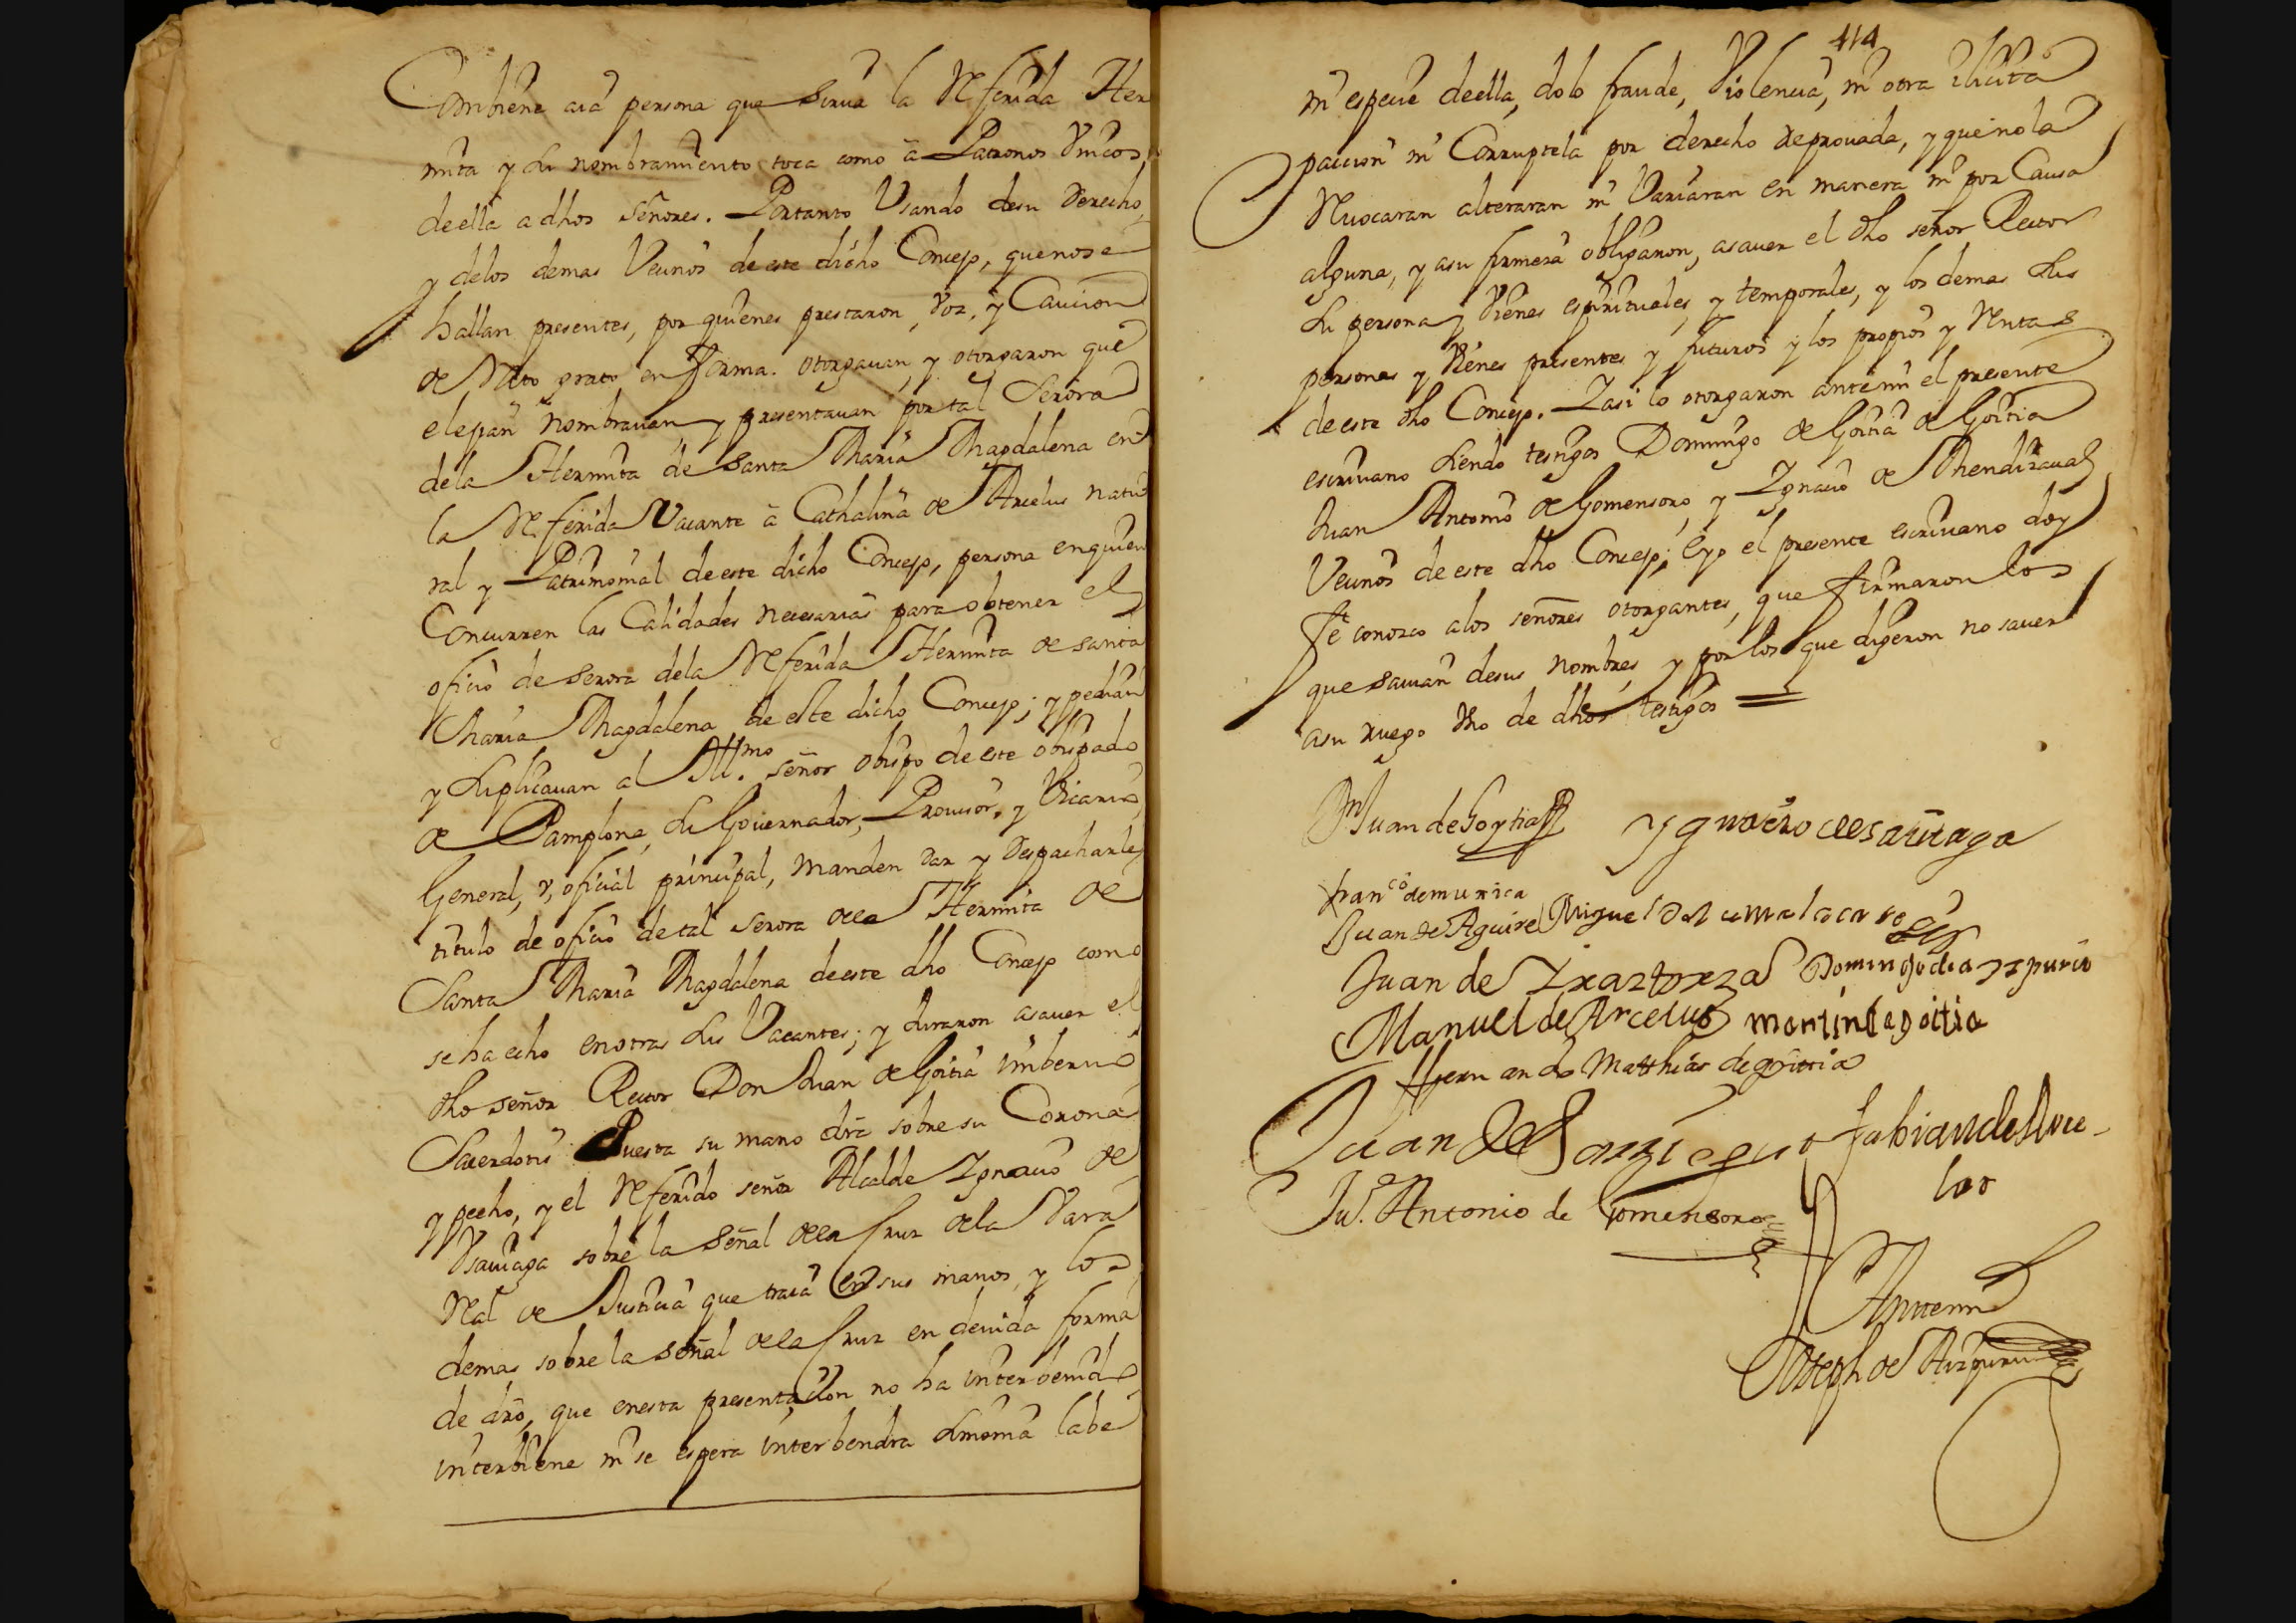 Combiene aia persona que sirua la Referida Her
mita y su nombramiento toca como â Patronos Vnicos,
deella a dhos señores. Portanto Vsando desu Derecho,
y delos demas Vecinos de este dicho Concejo, quenose
hallan presentes, por quienes prestaron, voz, y Caucion
de Rato grato en forma. otorgauan, y otorgaron que
elejian nombrauan, y presentauan por tal Serora
dela Hermita de Santa Maria Magdalena en
la Referida Vacante â Cathalina de Arcelus natu
ral y Patrimonial deeste dicho Concejo, persona enquien
Concurren las Calidades necesarias para obtener el
oficio de serora dela Referida Hermita de santa
Maria Magdalena de este dicho Concejo; y pedian
y suplicauan al Ill.mo señor obispo de este obispado
de Pamplona, su Gouernador, Prouisor, y Vicario
General, y, oficial principal, manden dar y despacharle
titulo de oficio de tal serora dela Hermita de
Santa Maria Magdalena deeste dho Concejo como
se ha echo enotras sus Vacantes; y juraron asauer el
dho señor Rector Don Juan de Goitia imberuo
Sacerdotis Puesta su mano dra sobre su Corona
y pecho, y el Referido señor Alcalde Ignacio de
Vsauiaga sobre la señal dela Cruz dela Vara
Real de Justicia que traia en sus manos, y los
demas sobre la señal dela Cruz en deuida forma
de dro, que enesta presentacion no ha interbenido
interbiene ni se espera interbendra simonia labe
414
ni especie deella, dolo fraude, Violencia, ni otra ilicita
paccion ni Corruptela por derecho reprouada, y que no la
Reuocaran alteraran ni Variaran en manera ni por Causa
alguna, y asu firmeza obligaron, asauer el dho señor Rector
su persona y Vienes espirituales, y temporales, y los demas sus
personas y Vienes presentes y futuros y los propios y Rentas
de este dho Concejo. Iasi lo otorgaron antemi el presente
escriuano siendo testigos Domingo de Goitia de Goitia
Juan Antonio de Gomensoro, y Ignacio de Mendizaual
Vecinos de este dho Concejo; eyo el presente escriuano doy
fe conozco alos señores otorgantes, que firmaron los
que sauian desus nombres, y por los que digeron no sauer
asu ruego vno de dhos testigos
Dn Juan de Goytia Ygnacio de Sauiaga
franco de munica
Juan de Aguirre Miguel
Juan de Iraztorza Domingo de azpuru
Manuel de Arcelus martin de goitia
Hernando Matthias de goitia
Juan de fabian de Arce
lus
Ju.o Antonio de Gomensoro
Antemi
Joseph de Aizpuru